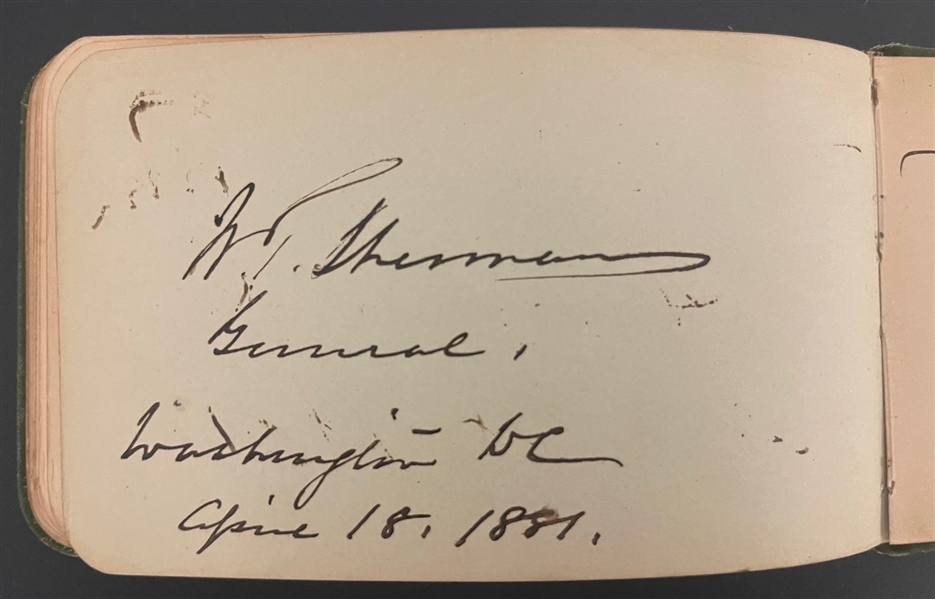 W. T. Sherman
General,
Washington DC
April 18, 1881.